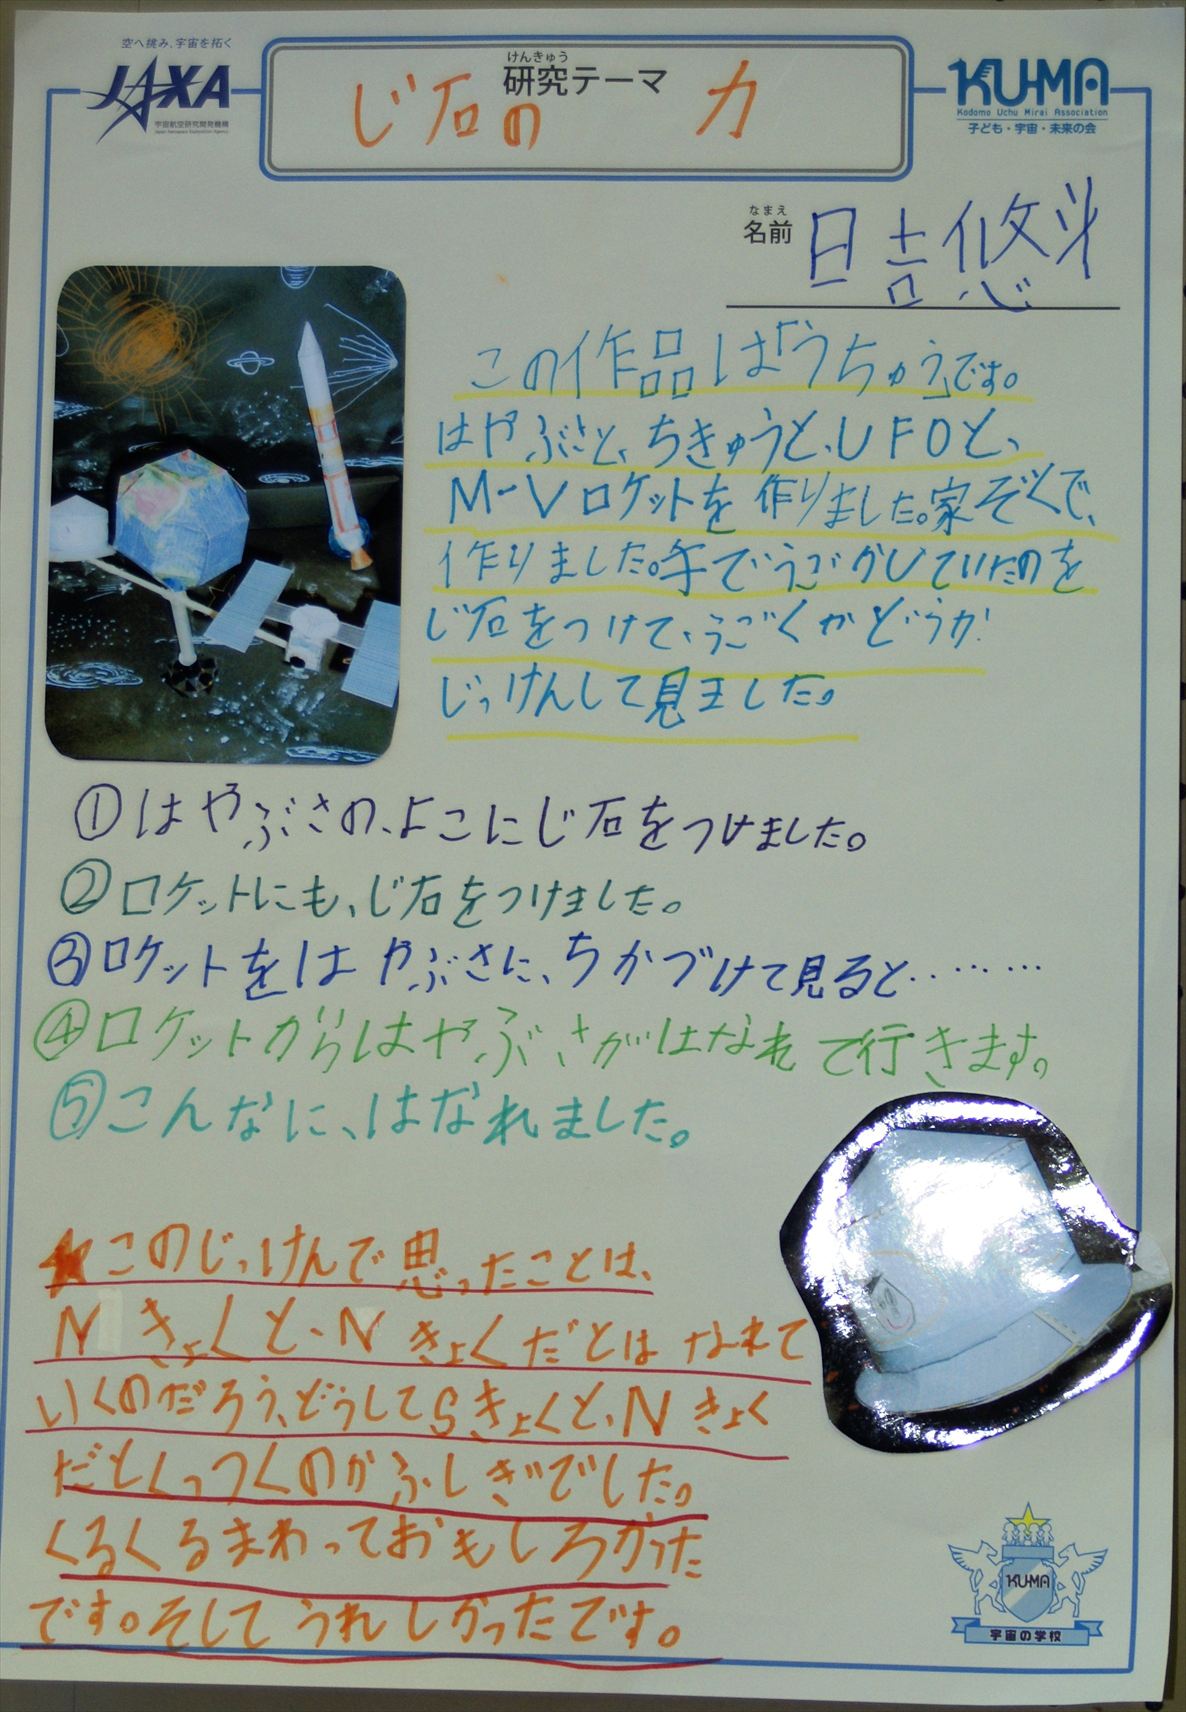 空へ挑み、宇宙を拓く
JAXA
宇宙航空研究開発機構
Japan Aerospace Exploration Agency
けんきゅう
研究テーマ
じ石の 力
KU-MA
Kodomo Uchu Mirai Association
子ども・宇宙・未来の会
なまえ
名前 日吉悠斗
この作品は「うちゅう」です。
はやぶさと、ちきゅうと、UFOと、
M-Vロケットを作りました。家ぞくで、
作りました。手でうごかしていたのを
じ石をつけて、うごくかどうか
じっけんして見ました。
①はやぶさの、よこにじ石をつけました。
②ロケットにも、じ石をつけました。
③ロケットをはやぶさに、ちかづけて見ると‥‥‥‥
④ロケットからはやぶさがはなれて行きます。
⑤こんなに、はなれました。
★このじっけんで思ったことは、
Nきょくと、Nきょくだとはなれて
いくのだろう、どうしてSきょくと、Nきょく
だとくっつくのかふしぎでした。
くるくるまわっておもしろかった
です。そしてうれしかったです。
KU-MA
宇宙の学校